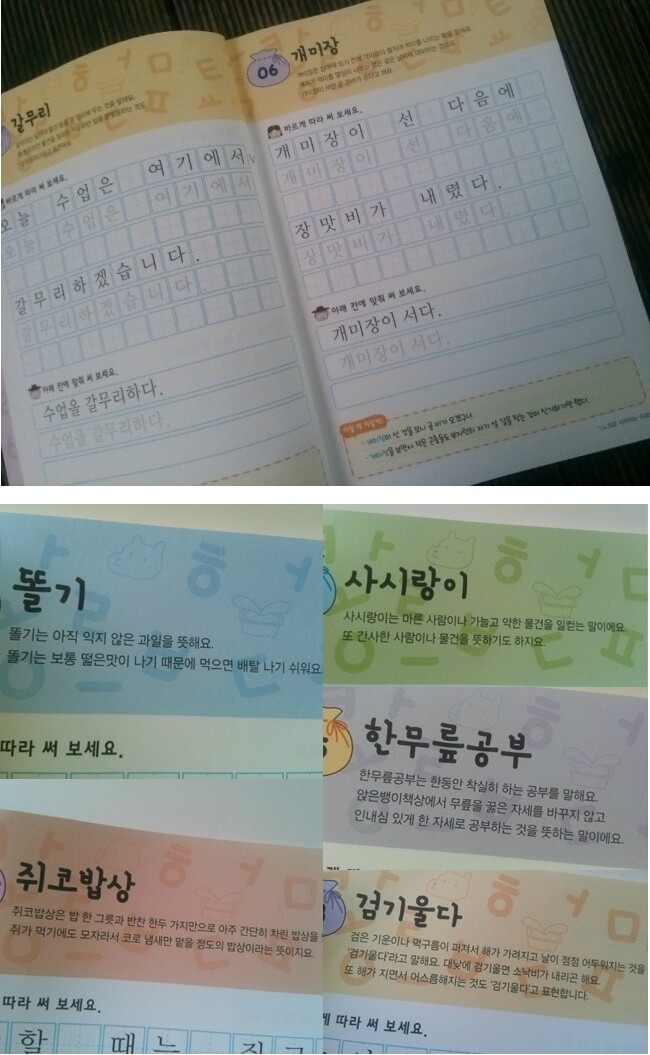 갈무리
바르게 따라 써 보세요.
오늘 수업은 여기에서
오늘 수업은 여기에서
갈무리하겠습니다.
갈무리하겠습니다.
아래 칸에 맞춰 써 보세요.
수업을 갈무리하다.
수업을 갈무리하다.
06 개미장
바르게 따라 써 보세요.
개미장이 선 다음에
개미장이 선 다음에
장맛비가 내렸다.
장맛비가 내렸다.
아래 칸에 맞춰 써 보세요.
개미장이 서다.
개미장이 서다.
이럴 때 이렇게!
똘기
똘기는 아직 익지 않은 과일을 뜻해요.
똘기는 보통 떫은맛이 나기 때문에 먹으면 배탈 나기 쉬워요.
따라 써 보세요.
사시랑이
사시랑이는 마른 사람이나 가늘고 약한 물건을 일컫는 말이에요.
또 간사한 사람이나 물건을 뜻하기도 하지요.
한무릎공부
한무릎공부는 한동안 착실히 하는 공부를 말해요.
앉은뱅이책상에서 무릎을 꿇은 자세를 바꾸지 않고
인내심 있게 한 자세로 공부하는 것을 뜻하는 말이에요.
쥐코밥상
쥐코밥상은 밥 한 그릇과 반찬 한두 가지만으로 아주 간단히 차린 밥상을
쥐가 먹기에도 모자라서 코로 냄새만 맡을 정도의 밥상이라는 뜻이지요.
따라 써 보세요.
할 때는
검기울다
검은 기운이나 먹구름이 퍼져서 해가 가려지고 날이 점점 어두워지는 것을
'검기울다'라고 말해요. 대낮에 검기울면 소낙비가 내리곤 해요.
또 해가 지면서 어스름해지는 것도 '검기울다'고 표현합니다.
게 따라 써 보세요.